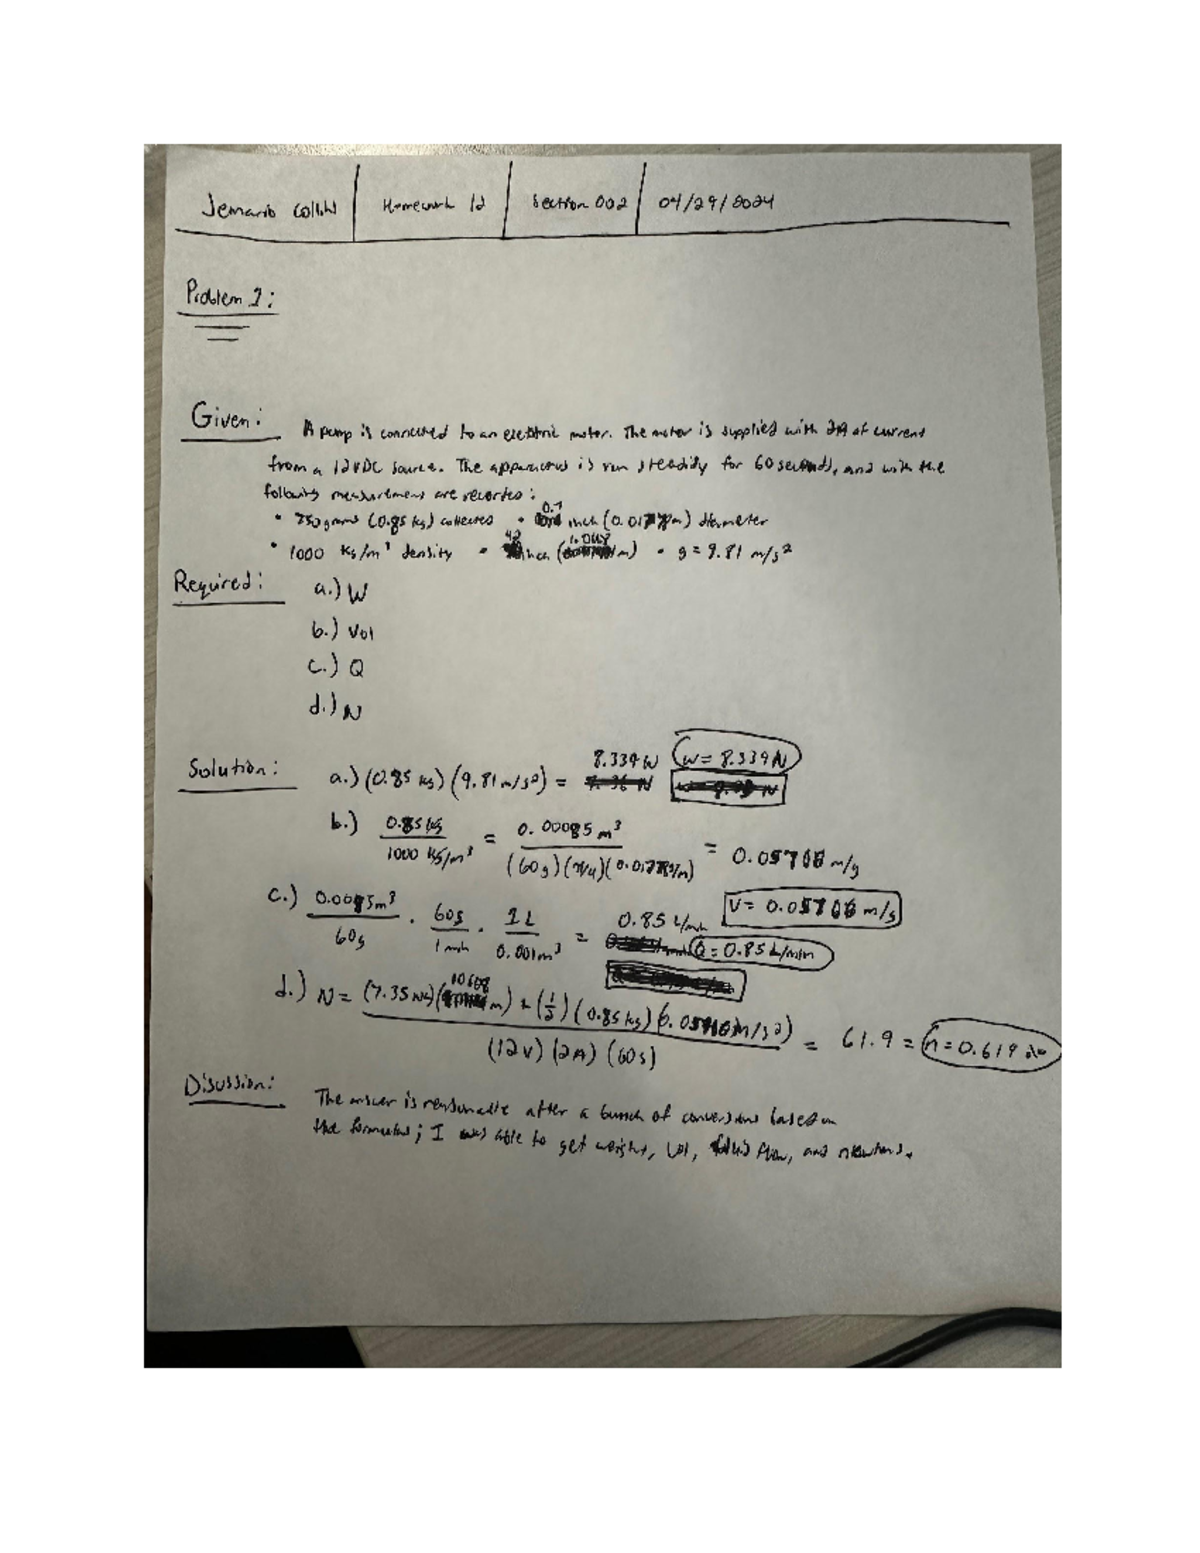 Jemario Homework 12 Section 002 04/29/2024
Problem 1:
Given: A pump is connected to an electric motor. The motor is supplied with 2A of current
from a 12VDC source. The apparatus is run steadily for 60 seconds, and with the
following measurement are recorded:
• 850 grams (0.85 kg) collected • 0.7 inch (0.01778m) diameter
• 1000 kg/m³ density • 42 inch (1.0668 m) • g = 9.81 m/s²
Required: a.) W
b.) Vol
c.) Q
d.) N
Solution: a.) (0.85 kg) (9.81 m/s²) = 8.339 W W = 8.339 N
b.) 0.85 kg / 1000 kg/m³ = 0.00085 m³ / (60s)(π/4)(0.01778m) = 0.05706 m/s
V = 0.05706 m/s
c.) 0.0085m³ / 60s · 60s / 1 min · 1L / 0.001m³ = 0.85 L/min Q = 0.85 L/min
d.) N = (7.35 )( m) + (1/2) (0.85 kg) ( m/s²) / (12v) (2A) (60s) = 61.9 = n = 0.619
Discussion: The answer is reasonable after a bunch of conversions based on
the formulas; I was able to get weight, vol, fluid flow, and newtons.